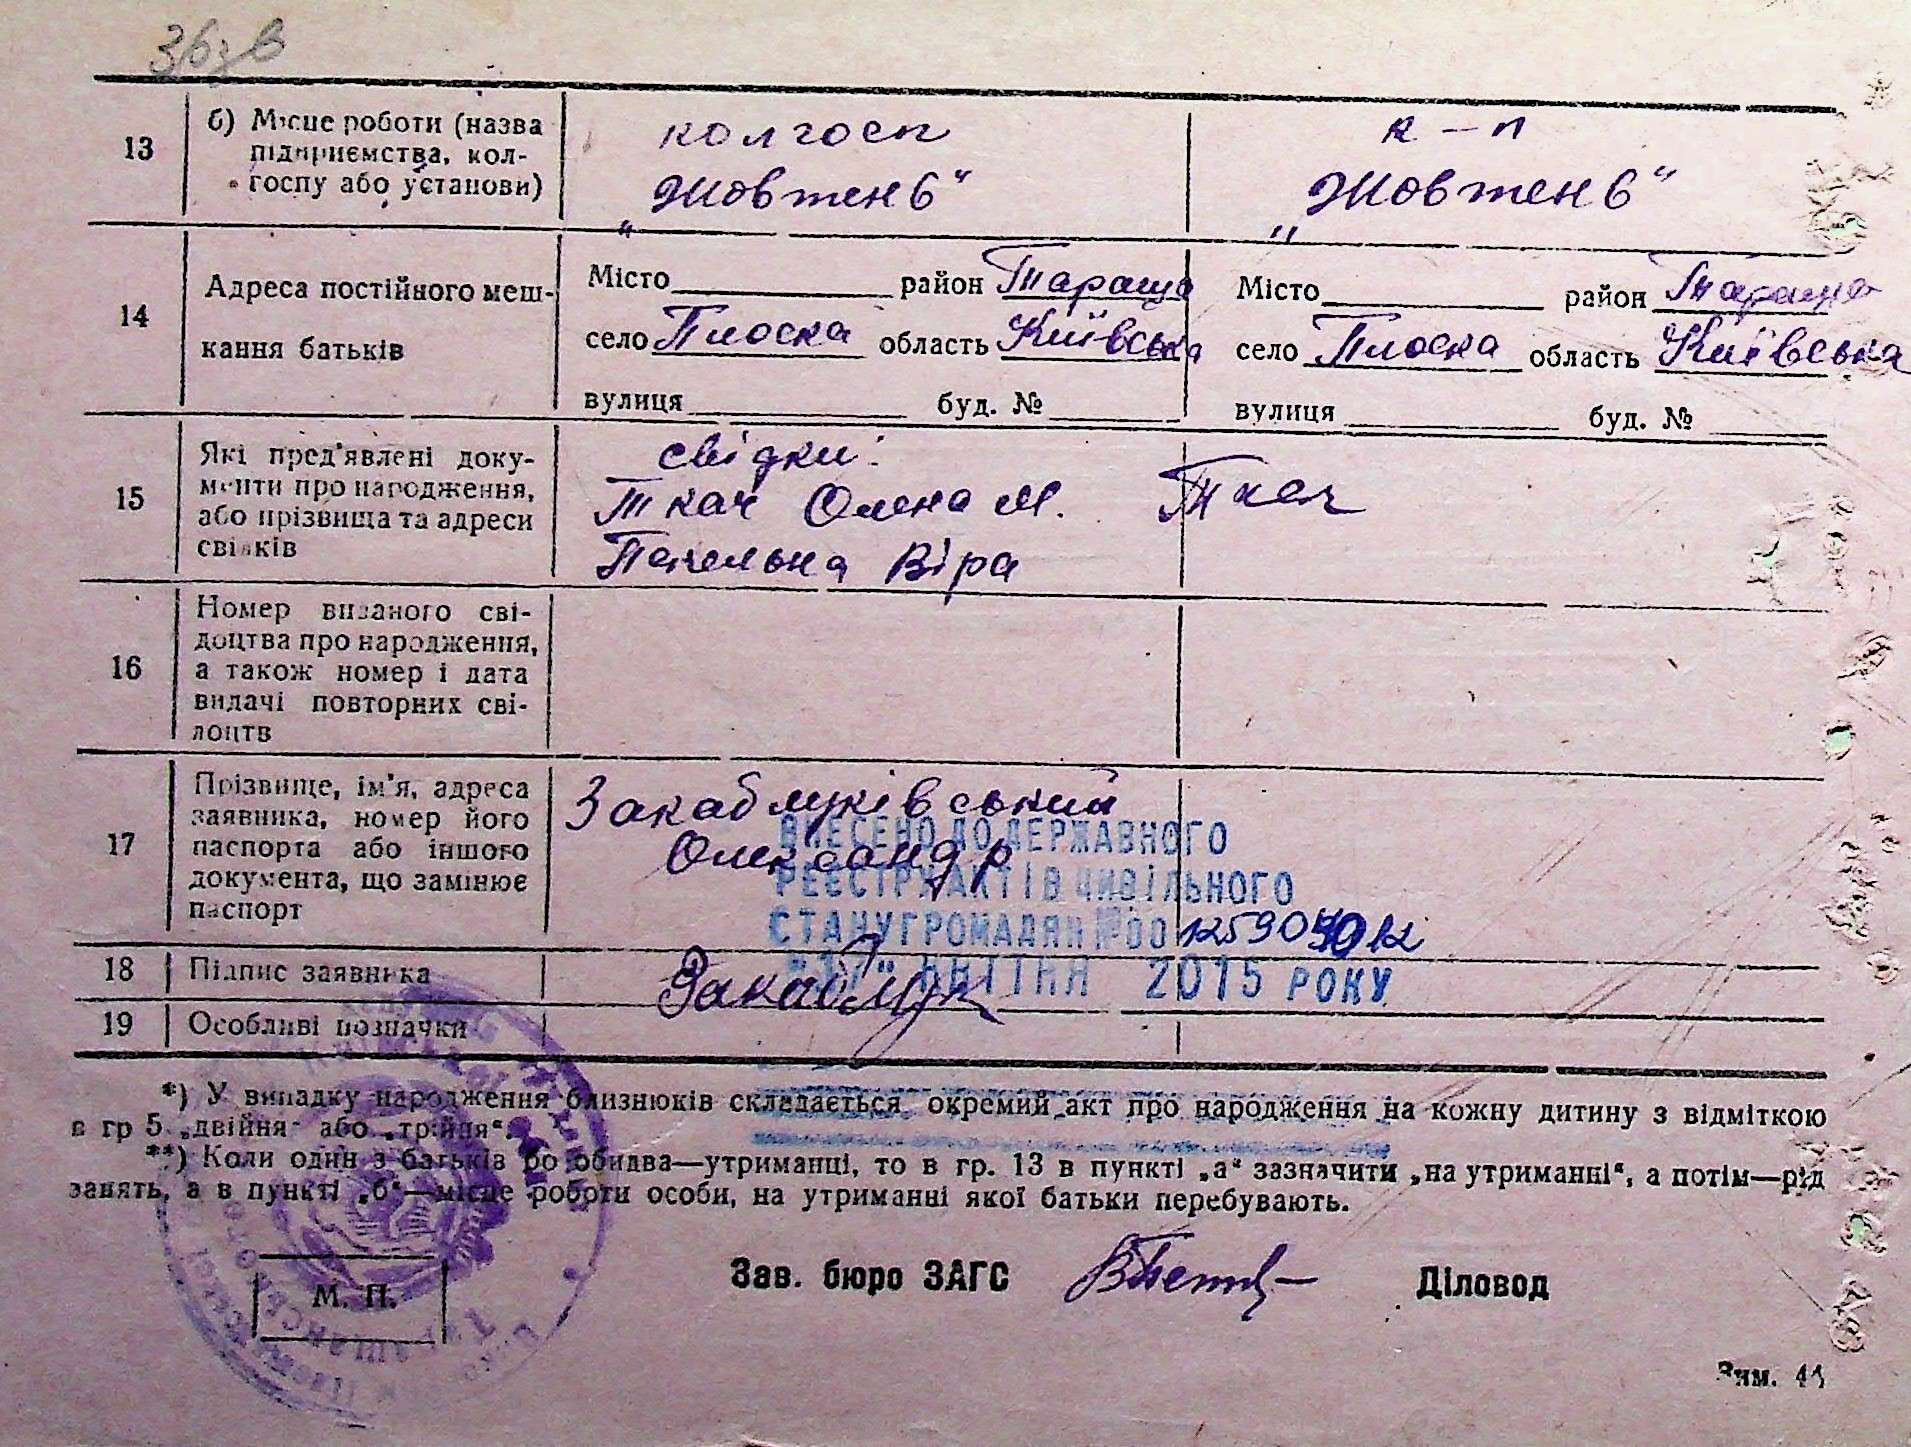 13 б) Місце роботи (назва
підприємства, кол-
госпу або установи)
колгосп
„Жовтень“
к-п
„Жовтень“
14 Адреса постійного меш-
кання батьків
Місто район Тараща
село Плоска область Київська
вулиця буд. №
Місто район Тараща
село Плоска область Київська
вулиця буд. №
15 Які пред'явлені доку-
менти про народження,
або прізвища та адреси
свідків
свідки:
Ткач Олена М. Ткач
Пекельна Віра
16 Номер виданого сві-
доцтва про народження,
а також номер і дата
видачі повторних сві-
доцтв
17 Прізвище, ім'я, адреса
заявника, номер його
паспорта або іншого
документа, що замінює
паспорт
Закаблуківський
Олександр
ВНЕСЕНО ДО ДЕРЖАВНОГО
РЕЄСТРУ АКТІВ ЦИВІЛЬНОГО
СТАНУ ГРОМАДЯН №00
"17" КВІТНЯ 2015 РОКУ
18 Підпис заявника
Закаблук
19 Особливі позначки
*) У випадку народження близнюків складається окремий акт про народження на кожну дитину з відміткою
в гр 5 „двійня“ або „трійня“.
**) Коли один з батьків бо обидва—утриманці, то в гр. 13 в пункті „а“ зазначити „на утриманні“, а потім—рід
занять, а в пункті „б“—місце роботи особи, на утриманні якої батьки перебувають.
М. П.
Зав. бюро ЗАГС
Діловод
Зам. 44